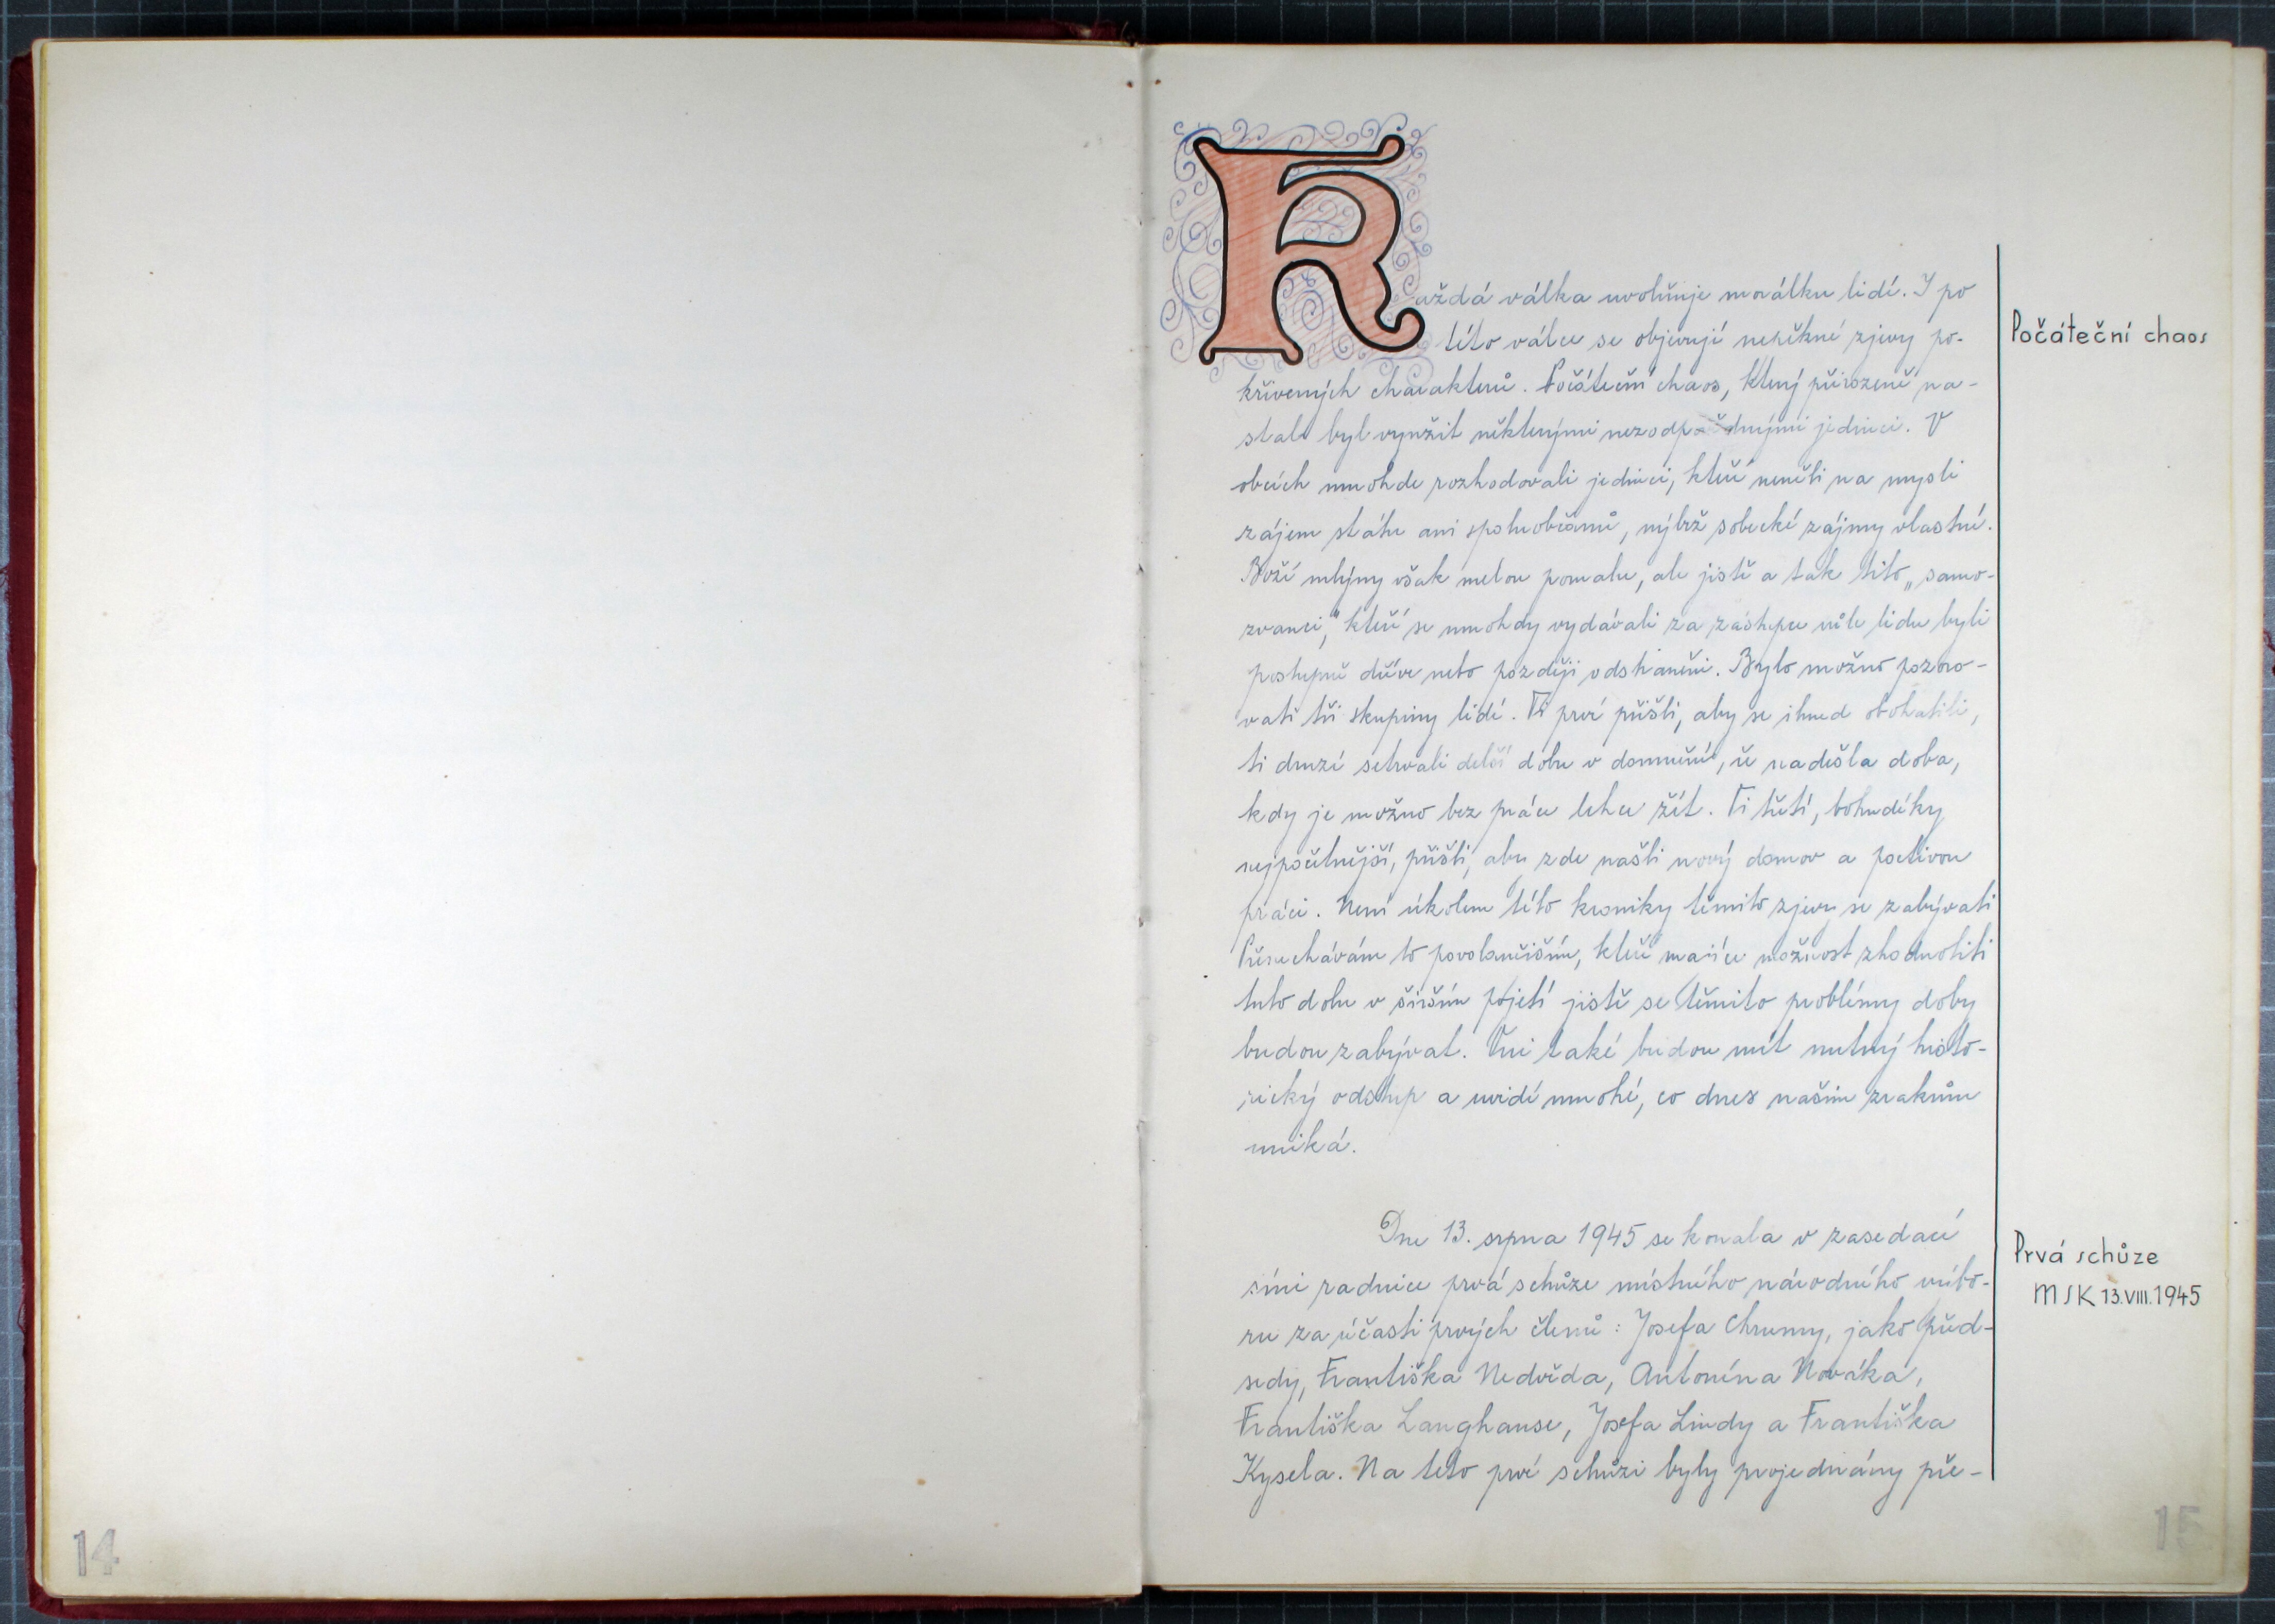 Každá válka uvolňuje morálku lidí. I po
této válce se objevují nepěkné zjevy po-
křivených charakterů. Počáteční chaos, který přirozeně na-
stal byl využit některými nezodpovědnými jedinci. V
obcích mnohde rozhodovali jedinci, kteří neměli na mysli
zájem státu ani spoluobčanů, nýbrž sobecké zájmy vlastní.
Boží mlýny však melou pomalu, ale jistě a tak tito „samo-
zvanci," kteří se mnohdy vydávali za zástupce vůle lidu byli
postupně dříve nebo později odstraněni. Bylo možno pozoro-
vati tři skupiny lidí. Ti prví přišli, aby se ihned obohatili,
ti druzí setrvali delší dobu v domnění, že nadešla doba,
kdy je možno bez práce lehce žít. Ti třetí, bohudíky
nejpočetnější, přišli, aby zde našli nový domov a poctivou
práci. Není úkolem této kroniky těmito zjevy se zabývati
Přenechávám to povolanějším, kteří majíce možnost zhodnotiti
tuto dobu v širším pojetí jistě se těmito problémy doby
budou zabývat. Oni také budou mít nutný histo-
rický odstup a uvidí mnohé, co dnes našim zrakům
uniká.
Počáteční chaos
Dne 13. srpna 1945 se konala v zasedací
síni radnice prvá schůze místního národního výbo-
ru za účasti prvých členů: Josefa Chrumy, jako před-
sedy, Františka Nedvěda, Antonína Nováka,
Františka Langhanse, Josefa Lindy a Františka
Kysela. Na této prvé schůzi byly projednány pře-
Prvá schůze
MSK 13.VIII.1945
14
15